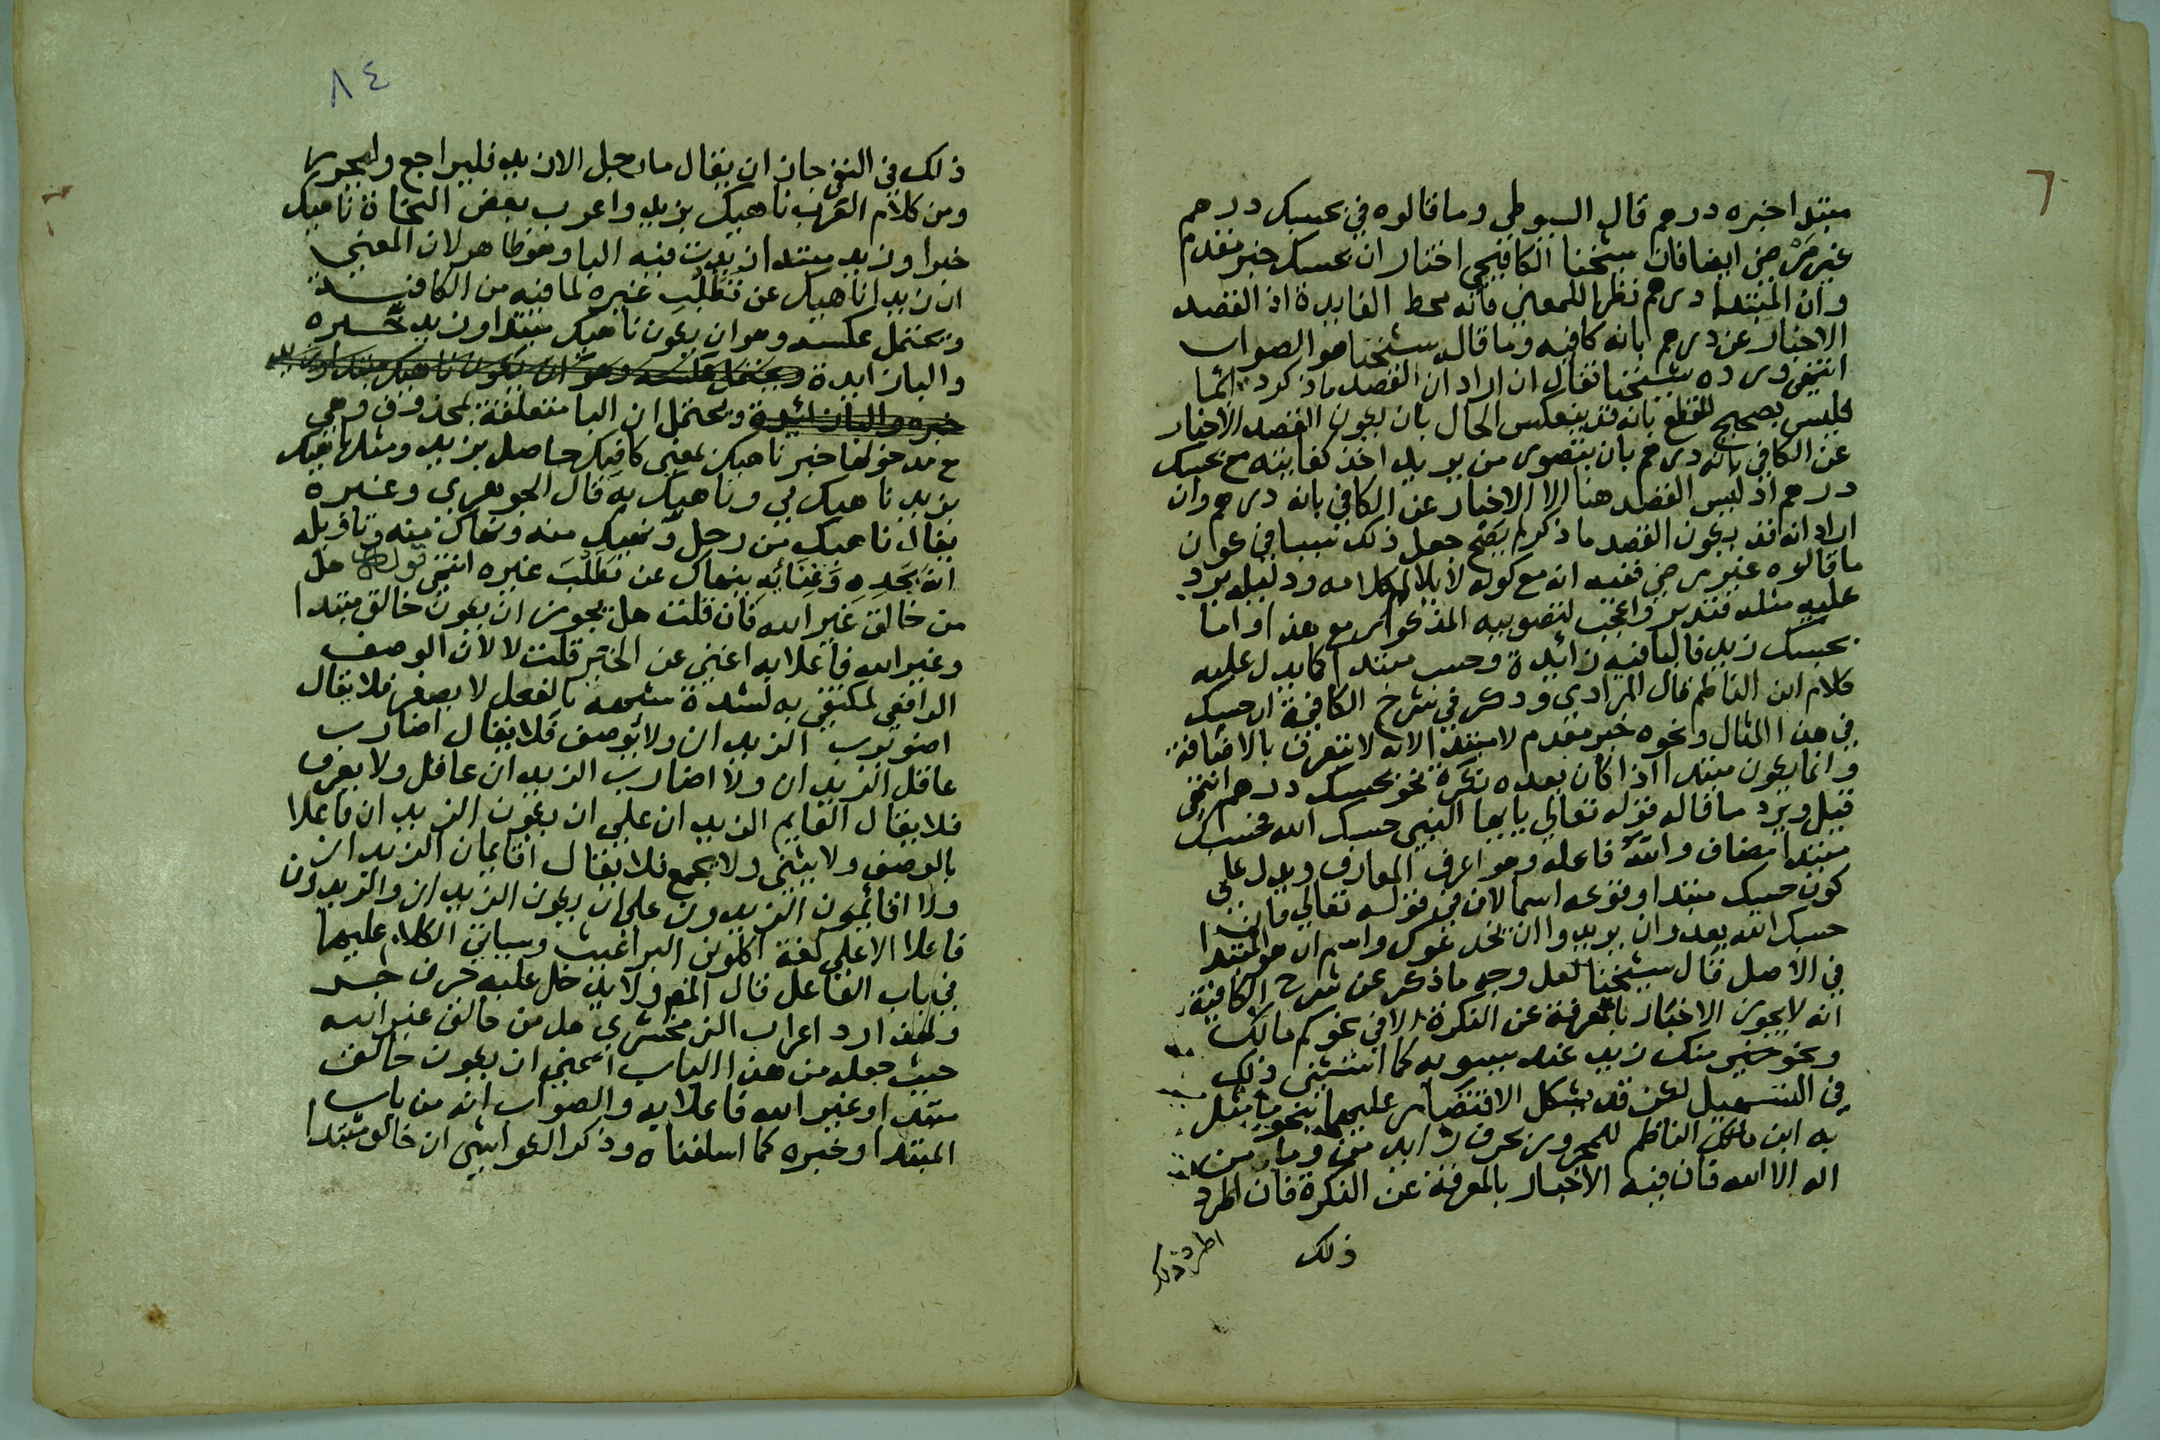 مبتدا خبره درهم قال السيوطي وما قالوه في بحسبك درهم
غير مرضي ايضا فان شيخنا الكافيجي اختار ان بحسبك خبر مقدم
وان المبتدا درهم نظرا للمعني فانه محط الفايدة اذ القصد
الاخبار عن درهم بانه كافيه وما قاله شيخنا هو الصواب
انتهي ورده شيخنا فقال ان اراد ان القصد ما ذكر دائما
فليس بصحيح للقطع بانه قد ينعكس الحال بان يكون القصد الاخبار
عن الكافي بانه درهم بان يتصور من يريد اخذ كفايته مع بحسبك
درهم اذ ليس القصد هنا الا الاخبار عن الكافي بانه درهم وان
اراد انه قد يكون القصد ما ذكر لم يصح جعل ذلك سببا في كون
ما قالوه غير مرضي ففيه انه مع كونه لا يلايم كلامه ودليله يرد
عليه مثله فتدبر واعجب لتصويبه المذكور مع هذا واما
بحسبك زيد فالبا فيه زائدة وحسب مبتدا كما يدل عليه
كلام ابن الناظم قال المرادي وذكر في شرح الكافية ان حسبك
في هذا المثال ونحوه خبر مقدم لا مبتدا لانه لا يتعرف بالاضافة
وانما يكون مبتدا اذا كان بعده نكرة نحو بحسبك درهم انتهي
قيل ويرد ما قاله قوله تعالي يايها النبي حسبك الله فحسبك
مبتدا مضاف والله فاعله وهو اعرف المعارف ويدل علي
كون حسبك مبتدا وقوعه اسما لان في قوله تعالي فان
حسبك الله بعد وان يريدوا ان يخدعوك واسم ان هو المبتدا
في الاصل قال شيخنا لعل وجه ما ذكر عن شرح الكافية
انه لا يجوز الاخبار بالمعرفة عن النكرة الا في نحو كم مالك
ونحو خير منك زيد عند سيبويه كما استثني ذلك
في التسهيل لكن قد يشكل الاقتصار عليهما بنحو ما مثل
به ابن مالك الناظم للمجرور بحرف زايد من وما من
اله الا الله فان فيه الاخبار بالمعرفة عن النكرة فان اطرد
ذلك
اطرد ذلك
٨٤
ذلك في النفي جاز ان يقال ما رجل الا زيد فليراجع وليحرر
ومن كلام العرب ناهيك بزيد واعرب بعض النحاة ناهيك
خبرا وزيد مبتدا زيدت فيه البا وهو ظاهر لان المعني
ان زيدا ناهيك عن تطلب غيره لما فيه من الكافية
ويحتمل عكسه وهو ان يكون ناهيك مبتدا وزيد خبره
والبا زايدة ويحتمل عكسه وهو ان يكون ناهيك مبتدا وزيد
خبره والبا زائدة ويحتمل ان البا متعلقة بمحذوف وهي
مع مدخولها خبر ناهيك بمعني كافيك حاصل بزيد ومثل ناهيك
بزيد ناهيك بي وناهيك به قال الجوهري وغيره
يقال ناهيك من رجل ونهيك منه ونهاك منه وتاويله
انه بجده وغنائه ينهاك عن تطلب غيره انتهي قوله هل
من خالق غير الله فان قلت هل يجوز ان يكون خالق مبتدا
وغير الله فاعلا به اغني عن الخبر قلت لا لان الوصف
الرافع لمكتفي به لشدة شبهه بالفعل لا يصغر فلا يقال
اضويرب الزيدان ولا يوصف فلا يقال اضارب
عاقل الزيدان ولا اضارب الزيدان عاقل ولا يعرف
فلا يقال القايم الزيدان علي ان يكون الزيدان فاعلا
بالوصف ولا يثني ولا يجمع فلا يقال اقايمان الزيدان
ولا اقائمون الزيدون علي ان يكون الزيدان والزيدون
فاعلا الا علي لغة اكلوني البراغيث وسياتي الكلام عليها
في باب الفاعل قال المص ولا يدخل عليه حرف جر
ولهذا رد اعراب الزمخشري هل من خالق غير الله
حيث جعله من هذا الباب اعني ان يكون خالق
مبتدا وغير الله فاعلا به والصواب انه من باب
المبتدا وخبره كما اسلفناه وذكر الحواشي ان خالق مبتدا